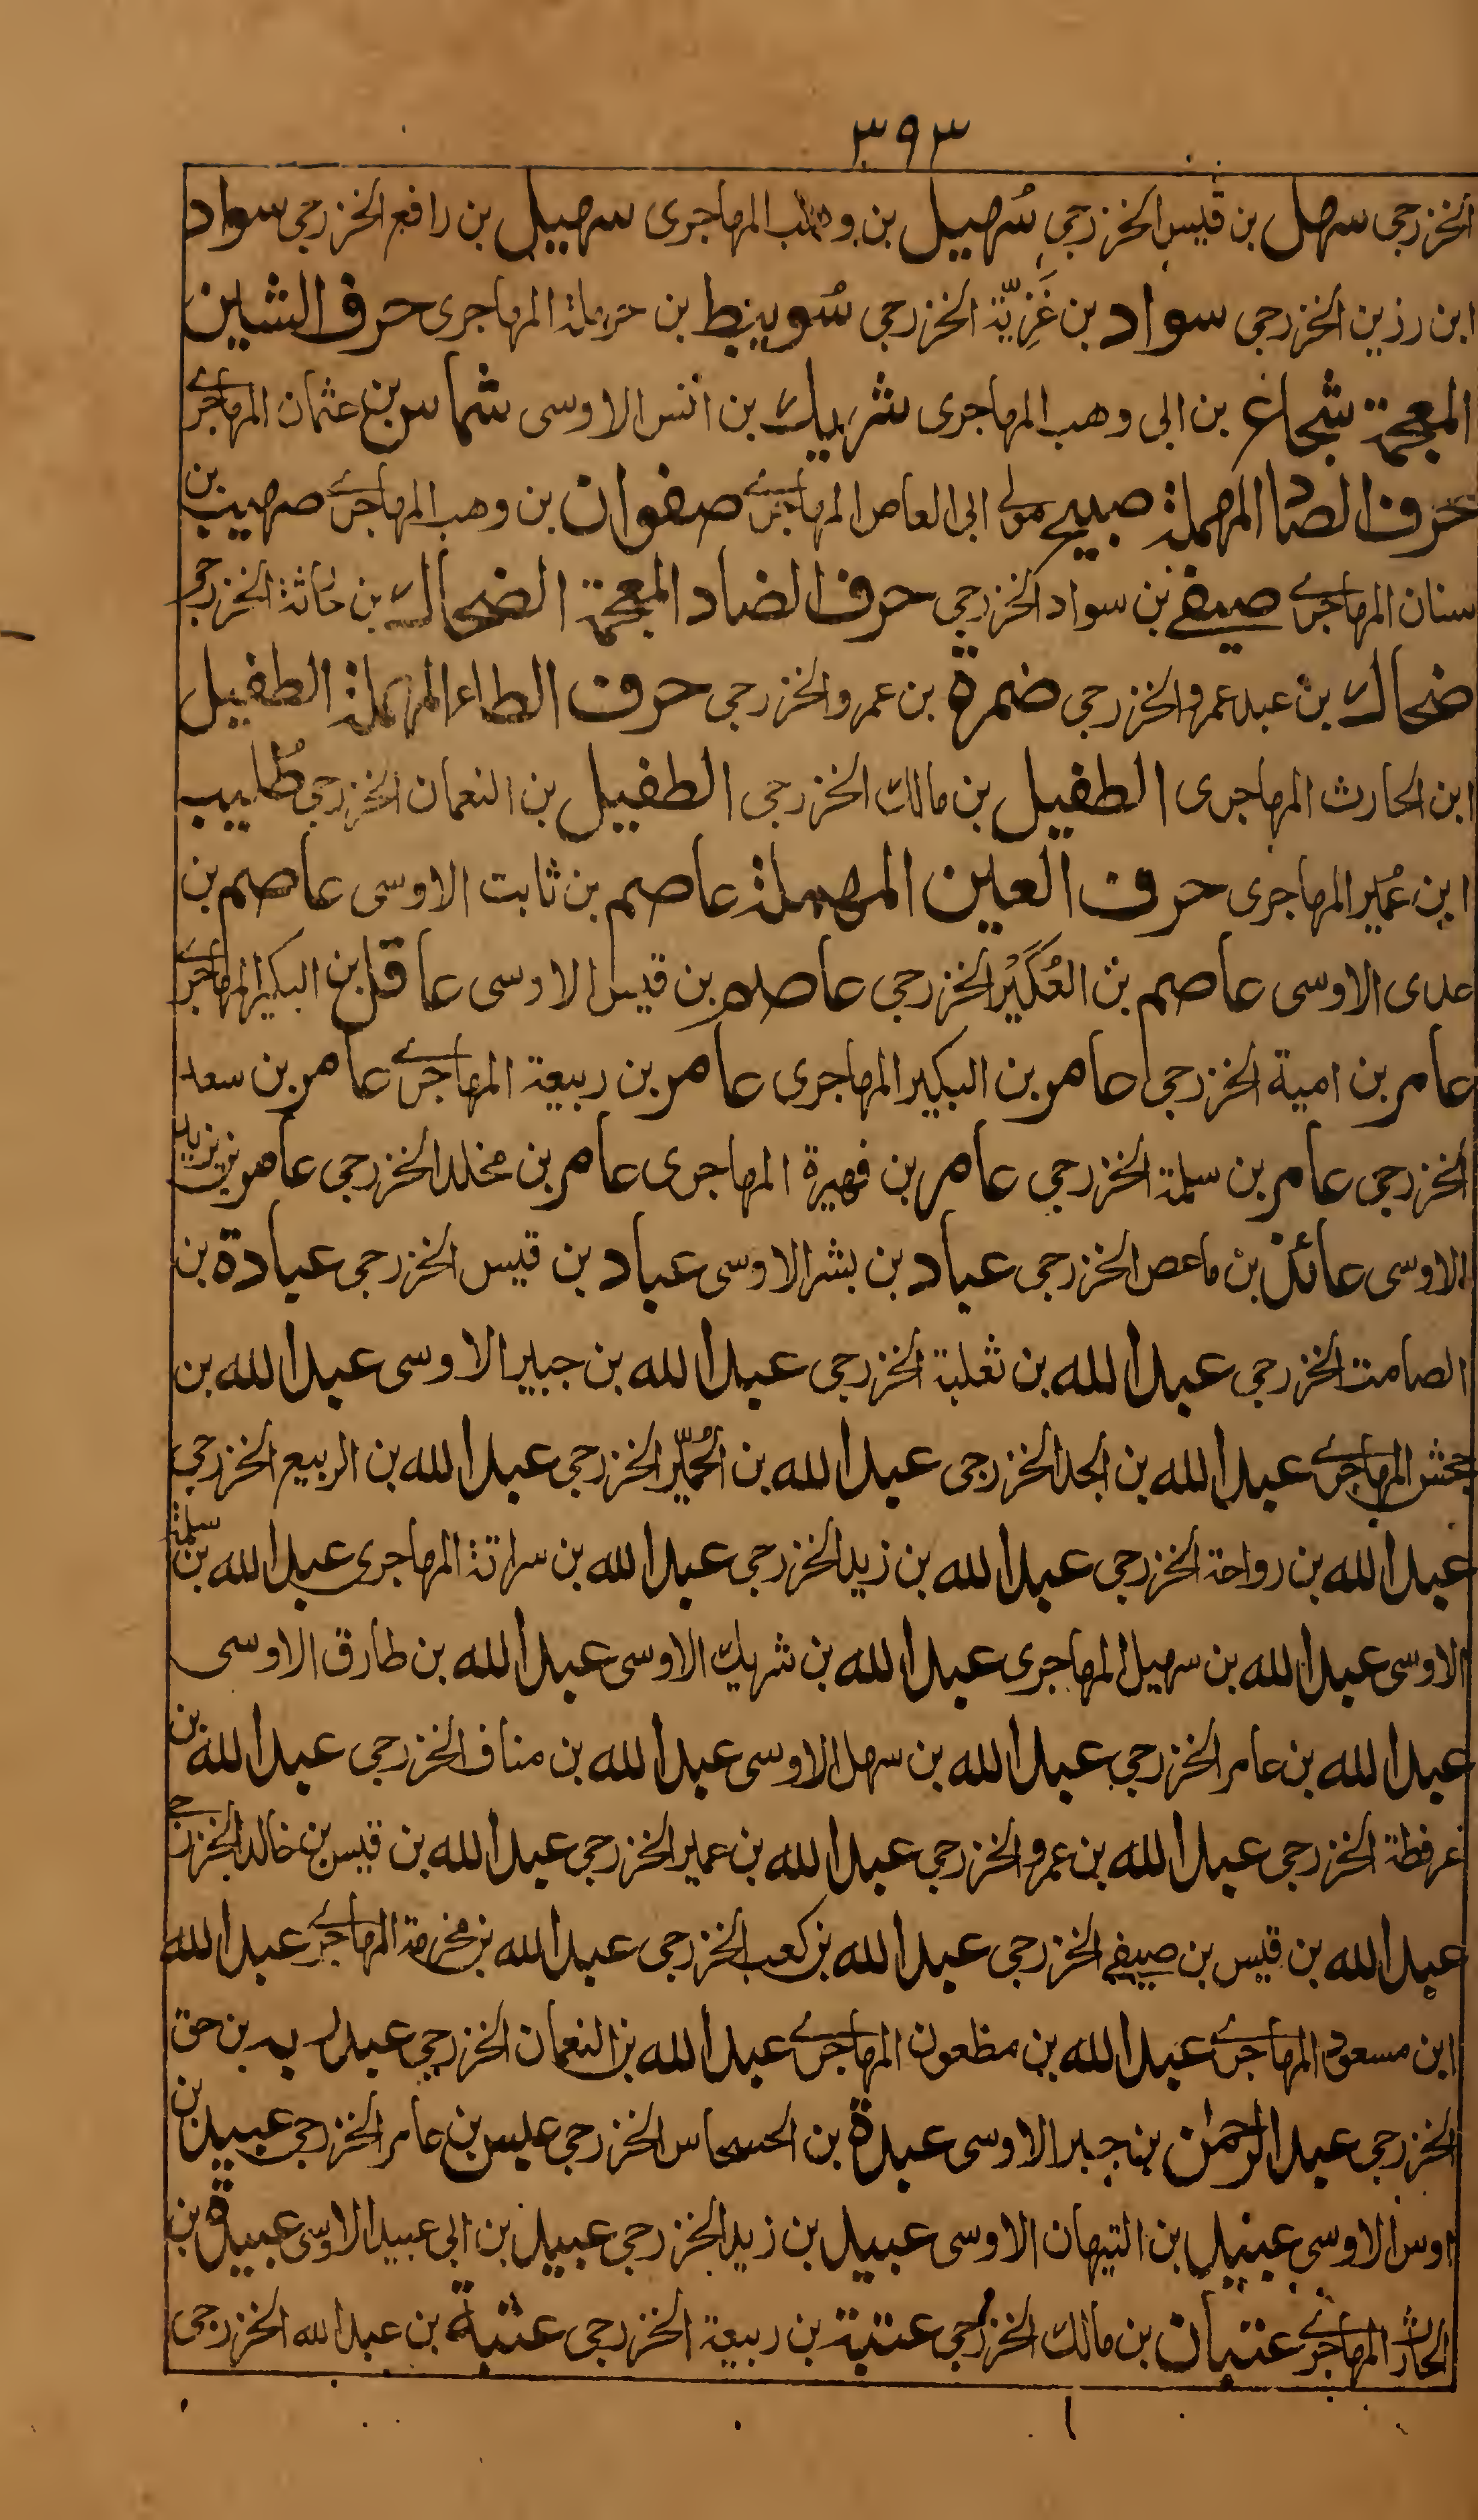 ٣٩٣
الخزرجی سهل بن قیس الخزرجی سُهیل بن وهب المهاجری سهیل بن رافع الخزرجی سواد
ابن رزین الخزرجی سواد بن غَزِیّة الخزرجی سُویبط بن حرملة المهاجری حرف الشین
المعجمة شجاع بن ابی وهب المهاجری شریك بن انس الاوسی شماس بن عثمان المهاجرے
حرف الصاد المهملة صبیح مولے ابی العاص المهاجرے صفوان بن وهب المهاجرے صهیب بن
سنان المهاجرے صیفے بن سواد الخزرجی حرف الضاد المعجمة الضحاك بن حارثة الخزرجی
ضحاك بن عبد عمرو الخزرجی ضمرة بن عمرو الخزرجی حرف الطاء المهملة الطفیل
ابن الحارث المهاجری الطفیل بن مالك الخزرجی الطفیل بن النعمان الخزرجی طُلیب
ابن عُمیر المهاجری حرف العین المهملة عاصم بن ثابت الاوسی عاصم بن
عدی الاوسی عاصم بن العُكَیْر الخزرجی عاصم بن قیس الاوسی عاقل بن البکیر المهاجرے
عامر بن امیة الخزرجی عامر بن البکیر المهاجری عامر بن ربیعة المهاجرے عامر بن سعد
الخزرجی عامر بن سلمة الخزرجی عامر بن فهیرة المهاجری عامر بن مخلد الخزرجی عامر بن یزید
الاوسی عائذ بن ماعص الخزرجی عباد بن بشر الاوسی عباد بن قیس الخزرجی عبادة بن
الصامت الخزرجی عبد الله بن ثعلبة الخزرجی عبد الله بن جبیر الاوسی عبد الله بن
جحش المهاجرے عبد الله بن الجد الخزرجی عبد الله بن الحُمیّر الخزرجی عبد الله بن الربیع الخزرجی
عبد الله بن رواحة الخزرجی عبد الله بن زید الخزرجی عبد الله بن سراقة المهاجری عبد الله بن سلمة
الاوسی عبد الله بن سهیل المهاجری عبد الله بن شریك الاوسی عبد الله بن طارق الاوسی
عبد الله بن عامر الخزرجی عبد الله بن سهل الاوسی عبد الله بن مناف الخزرجی عبد الله بن
عرفطة الخزرجی عبد الله بن عمرو الخزرجی عبد الله بن عمیر الخزرجی عبد الله بن قیس بن خالد الخزرجے
عبد الله بن قیس بن صیفے الخزرجی عبد الله بن كعب الخزرجی عبد الله بن مخرمة المهاجرے عبد الله
ابن مسعود المهاجرے عبد الله بن مظعون المهاجرے عبد الله بن النعمان الخزرجی عبد ربه بن حق
الخزرجی عبد الرحمٰن بن جبر الاوسی عبدة بن الحسحاس الخزرجی عبس بن عامر الخزرجی عبید بن
اوس الاوسی عبید بن التیهان الاوسی عبید بن زید الخزرجی عبید بن ابی عبید الاوسی عبیدة بن
الحارث المهاجرے عتبان بن مالك الخزرجی عتبة بن ربیعة الخزرجی عتبة بن عبد الله الخزرجی